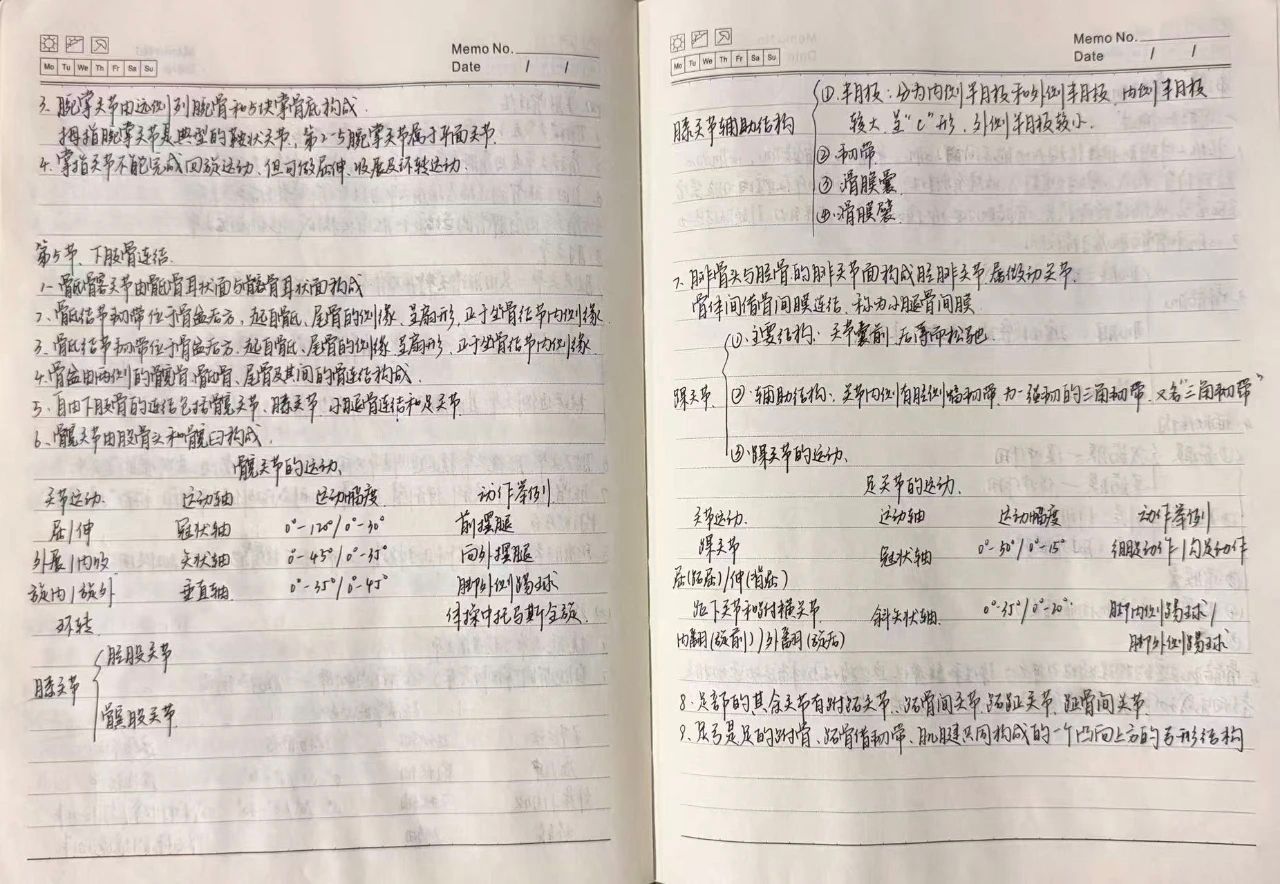 Memo No.
Date / /
Mo Tu We Th Fr Sa Su
3. 腕掌关节由远侧列腕骨和5块掌骨底构成.
拇指腕掌关节是典型的鞍状关节, 第2-5腕掌关节属于平面关节.
4. 掌指关节不能完成回旋运动, 但可做屈伸, 收展及环转运动.
第5节、下肢骨连结.
1. 骶髂关节由骶骨耳状面与髂骨耳状面构成
2. 骶结节韧带位于骨盆后方, 起自骶、尾骨的侧缘, 呈扇形, 止于坐骨结节内侧缘
3. 骶结节韧带位于骨盆后方. 起自骶、尾骨的侧缘 呈扇形, 止于坐骨结节内侧缘.
4. 骨盆由两侧的髋骨、骶骨、尾骨及其间的骨连结构成.
5. 自由下肢骨的连结包括髋关节、膝关节、小腿骨连结和足关节.
6. 髋关节由股骨头和髋臼构成.
髋关节的运动.
关节运动. 运动轴 运动幅度 动作举例
屈/伸 冠状轴 0°-120°/0°-30° 前摆腿
外展/内收 矢状轴 0°-45°/0°-35° 向外摆腿
旋内/旋外 垂直轴 0°-35°/0°-45° 脚外侧踢球
环转 体操中托马斯全旋
膝关节 胫股关节
髌股关节
Memo No.
Date / /
Mo Tu We Th Fr Sa Su
膝关节辅助结构 ①. 半月板: 分为内侧半月板和外侧半月板, 内侧半月板
较大 呈"C"形, 外侧半月板较小.
② 韧带
③ 滑膜囊
④. 滑膜襞
7. 腓骨头与胫骨的腓关节面构成胫腓关节 属微动关节.
骨体间借骨间膜连结, 称为小腿骨间膜
踝关节. ①. 主要结构: 关节囊前, 后薄而松弛.
② 辅助结构: 关节内侧有胫侧副韧带, 为一强韧的三角韧带, 又名"三角韧带"
③. 踝关节的运动.
足关节的运动.
关节运动. 运动轴 运动幅度 动作举例
踝关节 冠状轴 0°-50°/0°-15° 绷足动作/勾足动作
屈(跖屈)/伸(背屈)
距下关节和跗横关节 斜矢状轴. 0°-35°/0°-20° 脚内侧踢球/
内翻(旋前)/外翻(旋后) 脚外侧踢球
8. 足部的其余关节有跗跖关节、跖骨间关节、跖趾关节、趾骨间关节
9. 足弓是足的跗骨、跖骨借韧带、肌腱共同构成的一个凸向上方的弓形结构